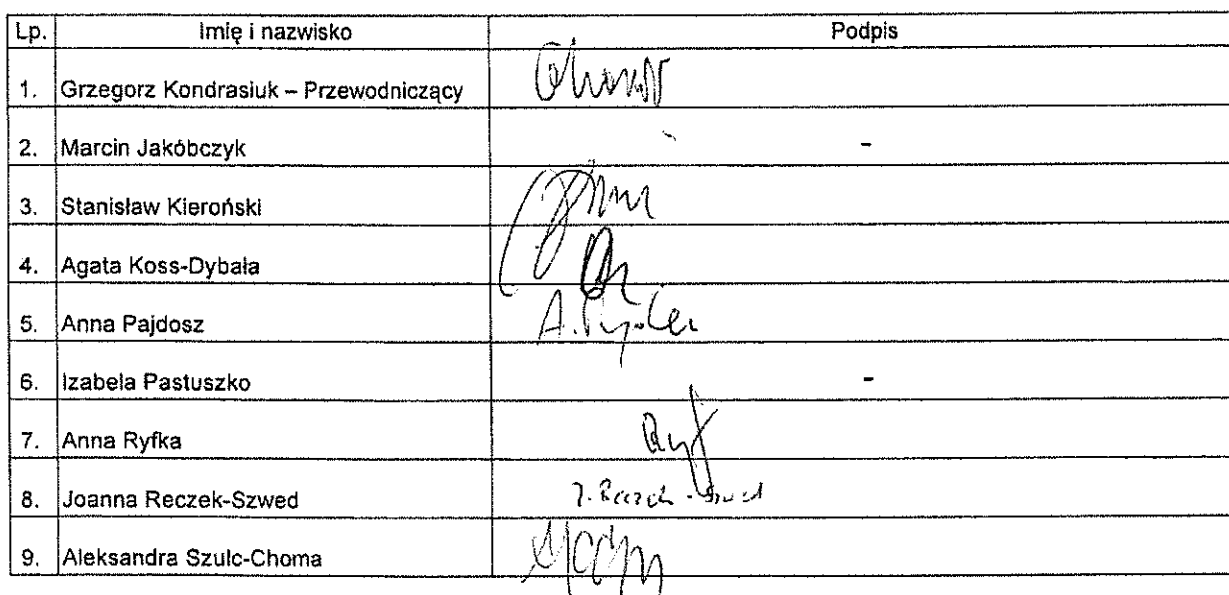 Lp. Imię i nazwisko Podpis
1. Grzegorz Kondrasiuk – Przewodniczący
2. Marcin Jakóbczyk -
3. Stanisław Kieroński
4. Agata Koss-Dybała
5. Anna Pajdosz A.
6. Izabela Pastuszko -
7. Anna Ryfka
8. Joanna Reczek-Szwed J. Reczek-Szwed
9. Aleksandra Szulc-Choma